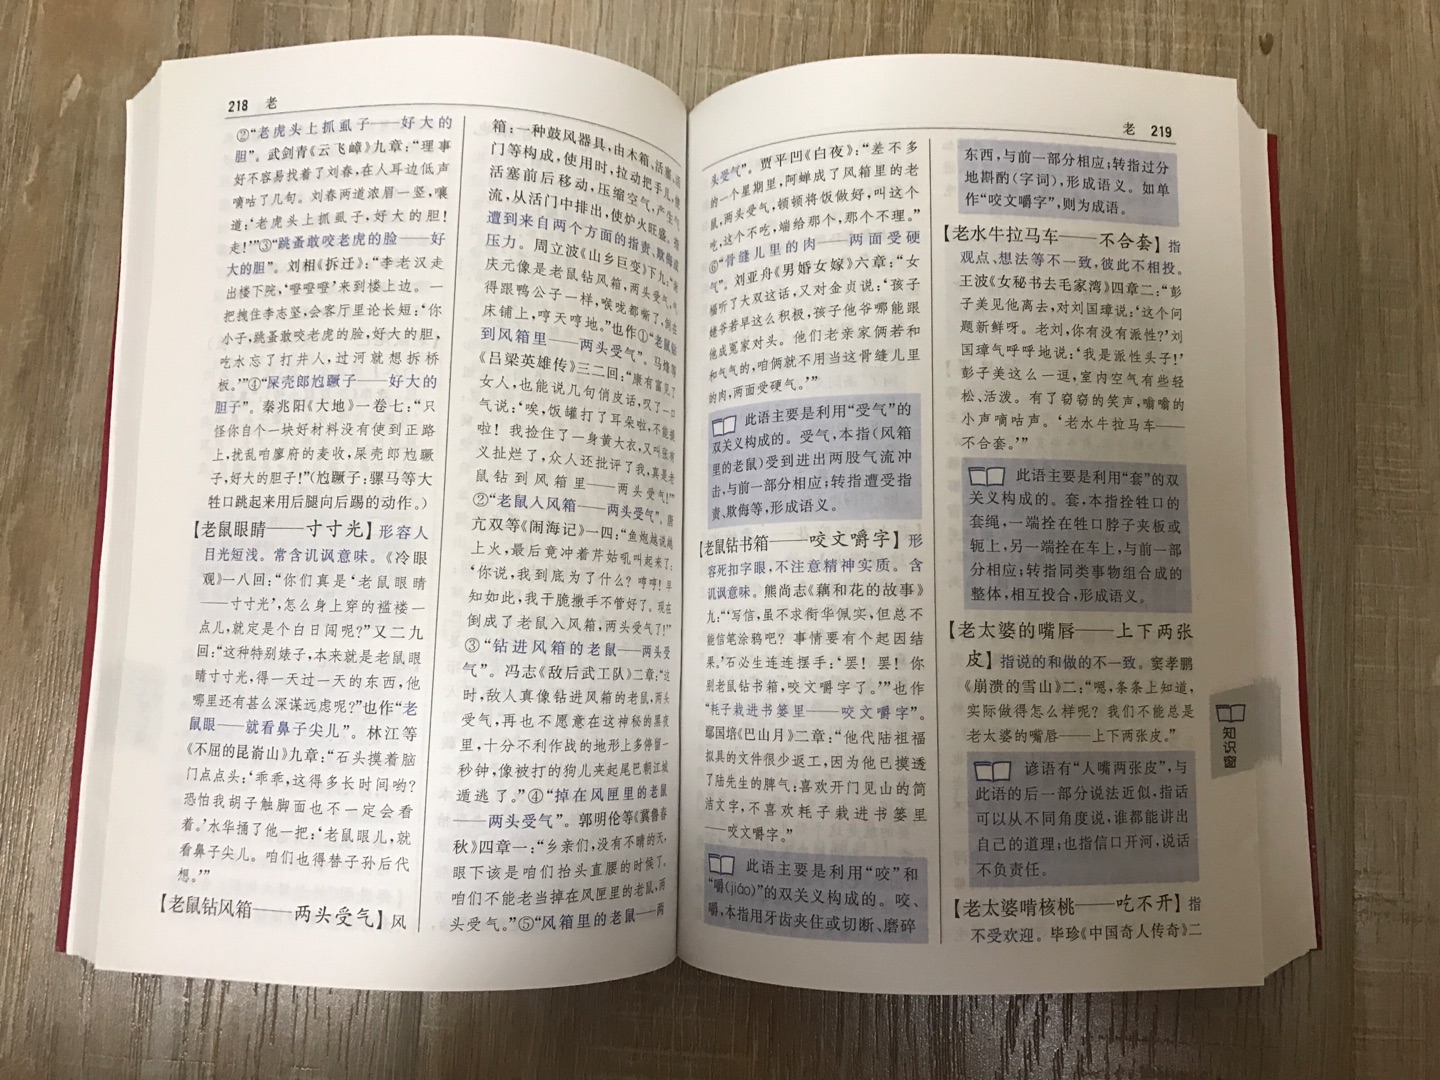 218 老
②“老虎头上抓虱子——好大的
胆”。武剑青《云飞嶂》九章：“理事
好不容易找着了刘春，在人耳边低声
嘀咕了几句。刘春两道浓眉一竖，嚷
道：‘老虎头上抓虱子，好大的胆！
走！’”③“跳蚤敢咬老虎的脸——好
大的胆”。刘相《拆迁》：“李老汉走
出楼下院，‘噔噔噔’来到楼上边。一
把拽住李志坚，会客厅里论长短：‘你
小子，跳蚤敢咬老虎的脸，好大的胆，
吃水忘了打井人，过河就想拆桥
板。’”④“屎壳郎尥蹶子——好大的
胆子”。秦兆阳《大地》一卷七：“只
怪你自个一块好材料没有使到正路
上，扰乱咱廖府的麦收，屎壳郎尥蹶
子，好大的胆子！”（尥蹶子：骡马等大
牲口跳起来用后腿向后踢的动作。）
【老鼠眼睛——寸寸光】形容人
目光短浅。常含讥讽意味。《冷眼
观》一八回：“你们真是‘老鼠眼睛
——寸寸光’，怎么身上穿的褴褛一
点儿，就定是个白日闯呢？”又二九
回：“这种特别婊子，本来就是老鼠眼
睛寸寸光，得一天过一天的东西，他
哪里还有甚么深谋远虑呢？”也作“老
鼠眼——就看鼻子尖儿”。林江等
《不屈的昆嵛山》九章：“石头摸着脑
门点点头：‘乖乖，这得多长时间哟？
恐怕我胡子触脚面也不一定会看
着。’水华捅了他一把：‘老鼠眼儿，就
看鼻子尖儿。咱们也得替子孙后代
想。’”
【老鼠钻风箱——两头受气】风
箱：一种鼓风器具，由木箱、活塞、活
门等构成，使用时，拉动把手儿，使
活塞前后移动，压缩空气，产生气
流，从活门中排出，使炉火旺盛。指
遭到来自两个方面的指责、欺侮或
压力。周立波《山乡巨变》下九：“
庆元像是老鼠钻风箱，两头受气，气
得跟鸭公子一样，喉咙都嘶了，倒在
床铺上，哼天哼地。”也作①“老鼠钻
到风箱里——两头受气”。马烽等
《吕梁英雄传》三二回：“康有富见了
女人，也能说几句俏皮话，叹了一口
气说：‘唉，饭罐打了耳朵啦，不能提
啦！我捡住了一身黄大衣，又叫张有
义扯烂了，众人还批评了我，真是老
鼠钻到风箱里——两头受气！’”
②“老鼠入风箱——两头受气”。唐
亢双等《闹海记》一四：“鱼炮越说越
上火，最后竟冲着芹姑吼叫起来了：
‘你说，我到底为了什么？哼哼！早
知如此，我干脆撒手不管好了。现在
倒成了老鼠入风箱，两头受气了！’”
③“钻进风箱的老鼠——两头受
气”。冯志《敌后武工队》二章：“这
时，敌人真像钻进风箱的老鼠，两头
受气，再也不愿意在这神秘的黑夜
里，十分不利作战的地形上多停留一
秒钟，像被打的狗儿夹起尾巴朝江城
遁逃了。”④“掉在风匣里的老鼠
——两头受气”。郭明伦等《冀鲁春
秋》四章一：“乡亲们，没有不晴的天，
眼下该是咱们抬头直腰的时候了，
咱们不能老当掉在风匣里的老鼠，两
头受气。”⑤“风箱里的老鼠——两
老 219
头受气”。贾平凹《白夜》：“差不多
的一个星期里，阿蝉成了风箱里的老
鼠，两头受气，顿顿将饭做好，叫这个
吃，这个不吃，端给那个，那个不理。”
⑥“骨缝儿里的肉——两面受硬
气”。刘亚舟《男婚女嫁》六章：“女
福听了大双这话，又对金贞说：‘孩子
姥爷若早这么积极，孩子他爷哪能跟
他成冤家对头。他们老亲家俩若和
和气气的，咱俩就不用当这骨缝儿里
的肉，两面受硬气。’”
此语主要是利用“受气”的
双关义构成的。受气，本指（风箱
里的老鼠）受到进出两股气流冲
击，与前一部分相应；转指遭受指
责、欺侮等，形成语义。
【老鼠钻书箱——咬文嚼字】形
容死扣字眼，不注意精神实质。含
讥讽意味。熊尚志《藕和花的故事》
九：“‘写信，虽不求衔华佩实，但总不
能信笔涂鸦吧？事情要有个起因结
果。’石必生连连摆手：‘罢！罢！你
别老鼠钻书箱，咬文嚼字了。’”也作
“耗子栽进书篓里——咬文嚼字”。
鄢国培《巴山月》二章：“他代陆祖福
拟具的文件很少返工，因为他已摸透
了陆先生的脾气：喜欢开门见山的简
洁文字，不喜欢耗子栽进书篓里
——咬文嚼字。”
此语主要是利用“咬”和
“嚼(jiáo)”的双关义构成的。咬、
嚼，本指用牙齿夹住或切断、磨碎
东西，与前一部分相应；转指过分
地斟酌（字词），形成语义。如单
作“咬文嚼字”，则为成语。
【老水牛拉马车——不合套】指
观点、想法等不一致，彼此不相投。
王波《女秘书去毛家湾》四章二：“彭
子美见他离去，对刘国璋说：‘这个问
题新鲜呀。老刘，你有没有派性？’刘
国璋气呼呼地说：‘我是派性头子！’
彭子美这么一逗，室内空气有些轻
松、活泼。有了窃窃的笑声，嗡嗡的
小声嘀咕声。‘老水牛拉马车——
不合套。’”
此语主要是利用“套”的双
关义构成的。套，本指拴牲口的
套绳，一端拴在牲口脖子夹板或
轭上，另一端拴在车上，与前一部
分相应；转指同类事物组合成的
整体，相互投合，形成语义。
【老太婆的嘴唇——上下两张
皮】指说的和做的不一致。窦孝鹏
《崩溃的雪山》二：“嗯，条条上知道，
实际做得怎么样呢？我们不能总是
老太婆的嘴唇——上下两张皮。”
谚语有“人嘴两张皮”，与
此语的后一部分说法近似，指话
可以从不同角度说，谁都能讲出
自己的道理；也指信口开河，说话
不负责任。
【老太婆啃核桃——吃不开】指
不受欢迎。毕珍《中国奇人传奇》二
知识窗